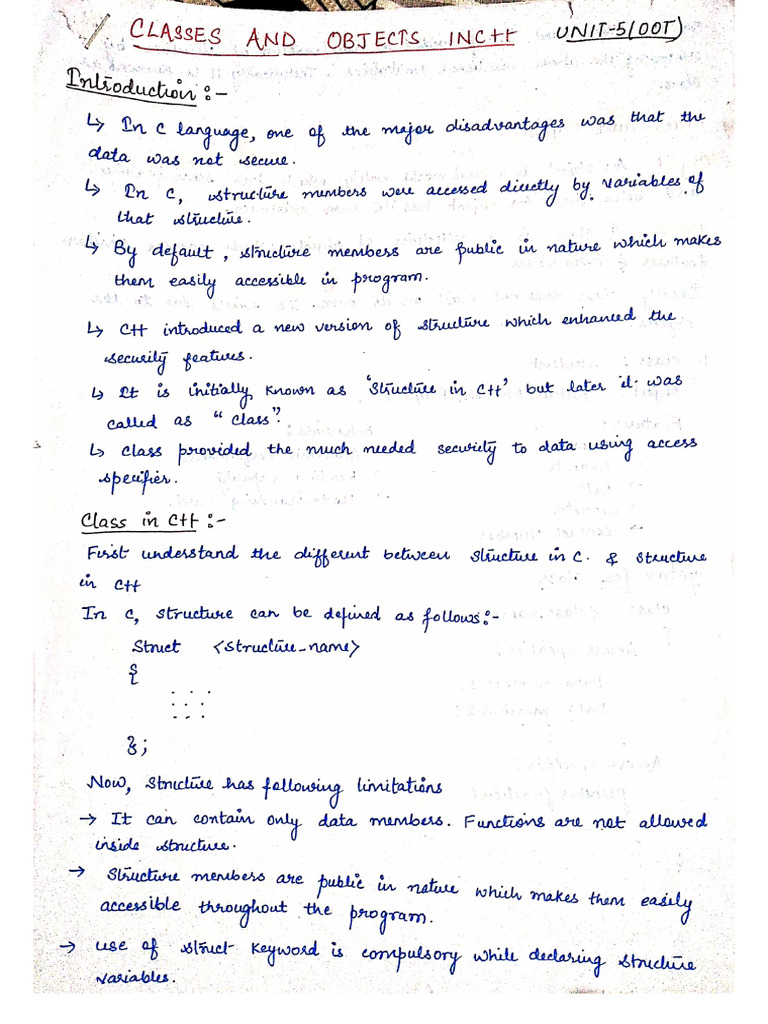 CLASSES AND OBJECTS IN C++ UNIT-5(OOT)
Introduction:-
↳ In C language, one of the major disadvantages was that the
data was not secure.
↳ In C, structure members were accessed directly by variables of
that structure.
↳ By default, structure members are public in nature which makes
them easily accessible in program.
↳ C++ introduced a new version of structure which enhanced the
security features.
↳ It is initially known as 'structure in C++' but later it was
called as "class".
↳ class provided the much needed security to data using access
specifier.
Class in C++:-
First understand the different between structure in C. & structure
in C++
In C, structure can be defined as follows:-
Struct <structure_name>
{
. . .
. . .
. . .
};
Now, structure has following limitations
→ It can contain only data members. Functions are not allowed
inside structure.
→ Structure members are public in nature which makes them easily
accessible throughout the program.
→ use of struct keyword is compulsory while declaring structure
variables.